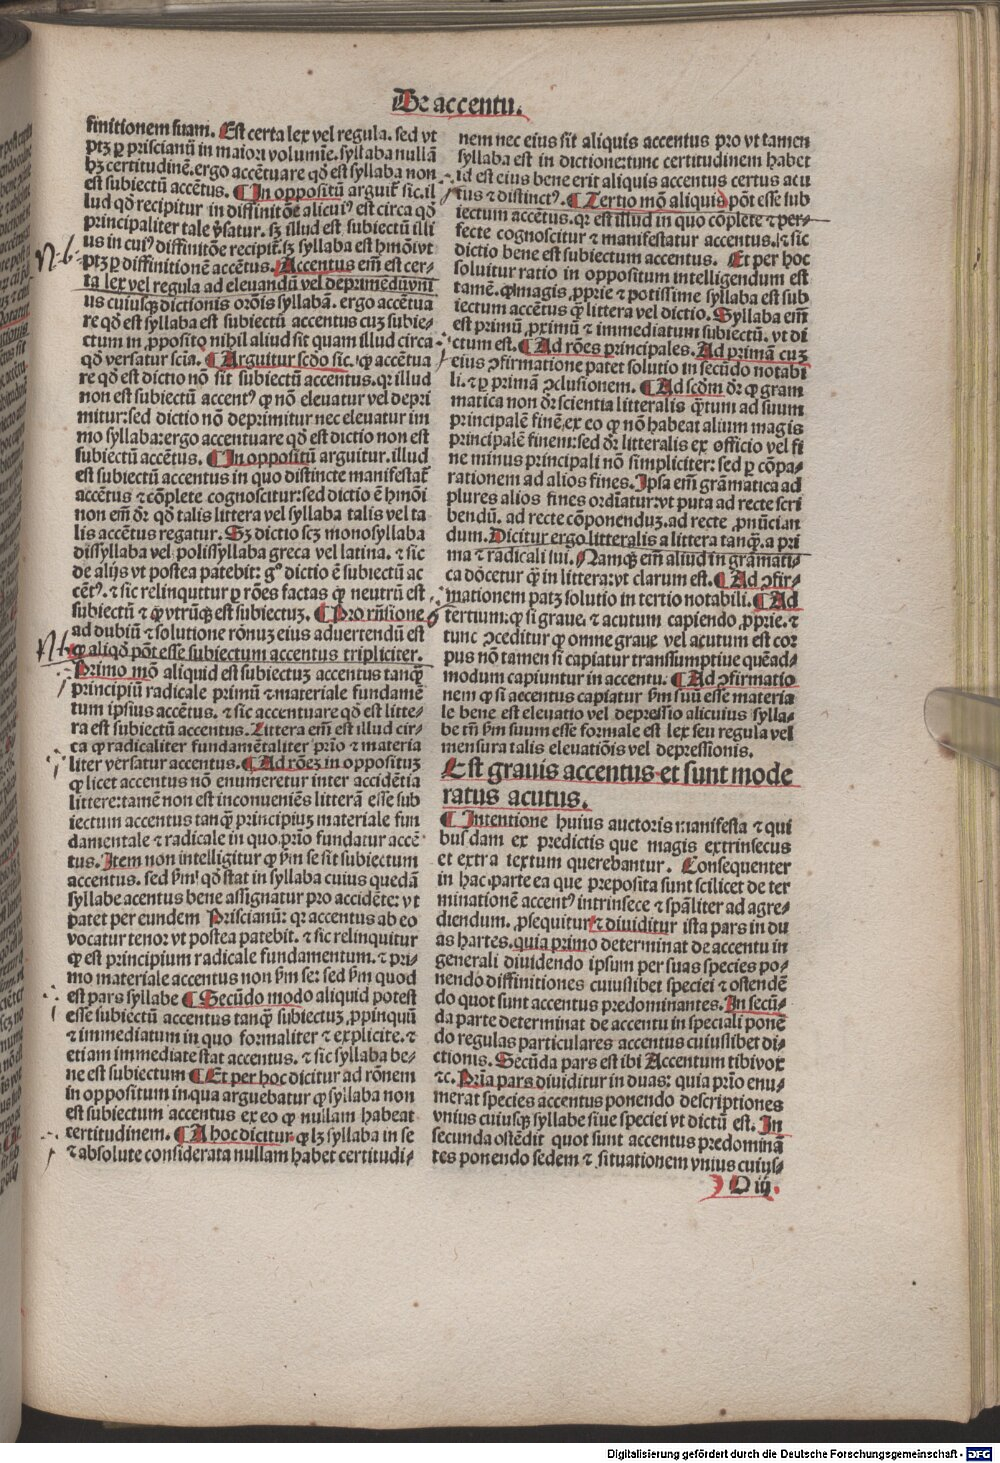 De accentu.
finitionem suam. Est certa lex vel regula. sed vt
ptꝫ ꝑ priscianū in maiori volumīe. syllaba nullā
hꝫ certitudinē. ergo accētuare qd̄ est syllaba non
est subiectū accētus. ¶ In oppositū arguit̄ sic. il
lud qd̄ recipitur in diffinitōe alicuiꝰ est circa qd̄
principaliter tale v̄satur. sꝫ illud est subiectū illi
us in cuiꝰ diffinitōe recipit̄. sꝫ syllaba est hmōi vt
ptꝫ ꝑ diffinitionē accētus. Accentus em̄ est cer-
ta lex vel regula ad eleuandū vel deprimēdū vni
us cuiusqꝫ dictionis orōis syllabā. ergo accētua
re qd̄ est syllaba est subiectū accentus cuꝫ subie-
ctum in ꝓposito nihil aliud sit quam illud circa
qd̄ versatur scīa. ¶ Arguitur scd̄o sic. ꝙ accētua
re qd̄ est dictio nō sit subiectū accentus. qꝛ illud
non est subiectū accentꝰ ꝙ nō eleuatur vel depri
mitur: sed dictio nō deprimitur nec eleuatur im
mo syllaba: ergo accentuare qd̄ est dictio non est
subiectū accētus. ¶ In oppositū arguitur. illud
est subiectū accentus in quo distincte manifestat̄
accētus ⁊ cōplete cognoscitur: sed dictio ē hmōi
non em̄ dr̄ qd̄ talis littera vel syllaba talis vel ta
lis accētus regatur. Sꝫ dictio scꝫ monosyllaba
dissyllaba vel polissyllaba greca vel latina. ⁊ sic
de alijs vt postea patebit: gͦ dictio ē subiectū ac
cētꝰ. ⁊ sic relinquitur ꝑ rōes factas ꝙ neutrū est
subiectū ⁊ ꝙ vtrūqꝫ est subiectuꝫ. ¶ Pro rn̄sione
ad dubiū ⁊ solutione rōnuꝫ eius aduertendū est
ꝙ aliqd̄ pōt esse subiectum accentus tripliciter.
Primo mō aliquid est subiectuꝫ accentus tanqꝫ̄
principiū radicale primū ⁊ materiale fundamē
tum ipsius accētus. ⁊ sic accentuare qd̄ est litte-
ra est subiectū accentus. Littera em̄ est illud cir-
ca ꝙ radicaliter fundamētaliter prīo ⁊ materia
liter versatur accentus. ¶ Ad rōeꝫ in oppositūꝫ
ꝙ licet accentus nō enumeretur inter accidētia
littere: tamē non est inconueniēs litterā esse sub
iectum accentus tanqꝫ̄ principiuꝫ materiale fun
damentale ⁊ radicale in quo prīo fundatur accē
tus. Item non intelligitur ꝙ ẜm se sit subiectum
accentus. sed ẜm qd̄ stat in syllaba cuius quedā
syllabe acentus bene assignatur pro accidēte: vt
patet per eundem Priscianū: qꝛ accentus ab eo
vocatur tenor vt postea patebit. ⁊ sic relinquitur
ꝙ est principium radicale fundamentum. ⁊ pri-
mo materiale accentus non ẜm se: sed ẜm quod
est pars syllabe ¶ Secūdo modo aliquid potest
esse subiectū accentus tanqꝫ̄ subiectuꝫ ꝓpinquū
⁊ immediatum in quo formaliter ⁊ explicite. ⁊
etiam immediate stat accentus. ⁊ sic syllaba be-
ne est subiectum ¶ Et per hoc dicitur ad rōnem
in oppositum in qua arguebatur ꝙ syllaba non
est subiectum accentus ex eo ꝙ nullam habeat
certitudinem. ¶ Ad hoc dicitur ꝙ lꝫ syllaba in se
⁊ absolute considerata nullam habet certitudi-
nem nec eius sit aliquis accentus pro vt tamen
syllaba est in dictione: tunc certitudinem habet
id est eius bene erit aliquis accentus certus acu
tus ⁊ distinctꝰ. ¶ Tertio mō aliquid pōt esse sub
iectum accētus. qꝛ est illud in quo cōplete ⁊ per-
fecte cognoscitur ⁊ manifestatur accentus. ⁊ sic
dictio bene est subiectum accentus. Et per hoc
soluitur ratio in oppositum intelligendum est
tamē. ꝙ magis ꝓprie ⁊ potissime syllaba est sub
iectum accētus ꝙ littera vel dictio. Syllaba em̄
est primū ꝓximū ⁊ immediatum subiectū. vt di
ctum est. ¶ Ad rōes principales. Ad primā cuꝫ
eius ꝯfirmatione patet solutio in secūdo notabi
li. ⁊ ꝑ primā ꝯclusionem. ¶ Ad scd̄m dr̄ ꝙ gram
matica non dr̄ scientia litteralis qꝫ̄tum ad suum
principalē finē, ex eo ꝙ nō habeat alium magis
principalē finem: sed dr̄ litteralis ex officio vel fi
ne minus principali nō simpliciter: sed ꝑ cōpa-
rationem ad alios fines. Ipsa em̄ grāmatica ad
plures alios fines ordiatur: vt puta ad recte scri
bendū. ad recte cōponenduꝫ. ad recte ꝓnūcian
dum. Dicitur ergo litteralis a littera tanqꝫ̄. a pri
ma ⁊ radicali sui. Namqꝫ em̄ aliud in grāmati-
ca docetur qꝫ̄ in littera: vt clarum est. ¶ Ad ꝯfir-
mationem patꝫ solutio in tertio notabili. ¶ Ad
tertium: ꝙ si graue. ⁊ acutum capiendo ꝓprie. ⁊
tunc ꝯceditur ꝙ omne graue vel acutum est cor
pus nō tamen si capiatur transsumptiue quēad-
modum capiuntur in accentu. ¶ Ad ꝯfirmatio
nem ꝙ si accentus capiatur ẜm suū esse materia
le bene est eleuatio vel depressio alicuius sylla-
be tn̄ ẜm suum esse formale est lex seu regula vel
mensura talis eleuatiōis vel depressionis.
Est grauis accentus et sunt mode
ratus acutus.
¶ Intentione huius auctoris manifesta ⁊ qui
busdam ex predictis que magis extrinsecus
et extra textum querebantur. Consequenter
in hac parte ea que preposita sunt scilicet de ter
minatione accentꝰ intrinsece ⁊ spāliter ad agre-
diendum. ꝓsequitur ⁊ diuiditur ista pars in du
as hartes. quia primo determinat de accentu in
generali diuidendo ipsum per suas species po-
nendo diffinitiones cuiuslibet speciei ⁊ ostendē
do quot sunt accentus predominantes. In secū-
da parte determinat de accentu in speciali ponē
do regulas particulares accentus cuiuslibet di-
ctionis. Secūda pars est ibi Accentum tibi vox
⁊c. Prīa pars diuiditur in duas: quia prīo enu-
merat species accentus ponendo descriptiones
vnius cuiusqꝫ syllabe siue speciei vt dictū est. In
secunda ostēdit quot sunt accentus predominā
tes ponendo sedem ⁊ situationem vnius cuius-
D iij
Digitalisierung gefördert durch die Deutsche Forschungsgemeinschaft - DFG